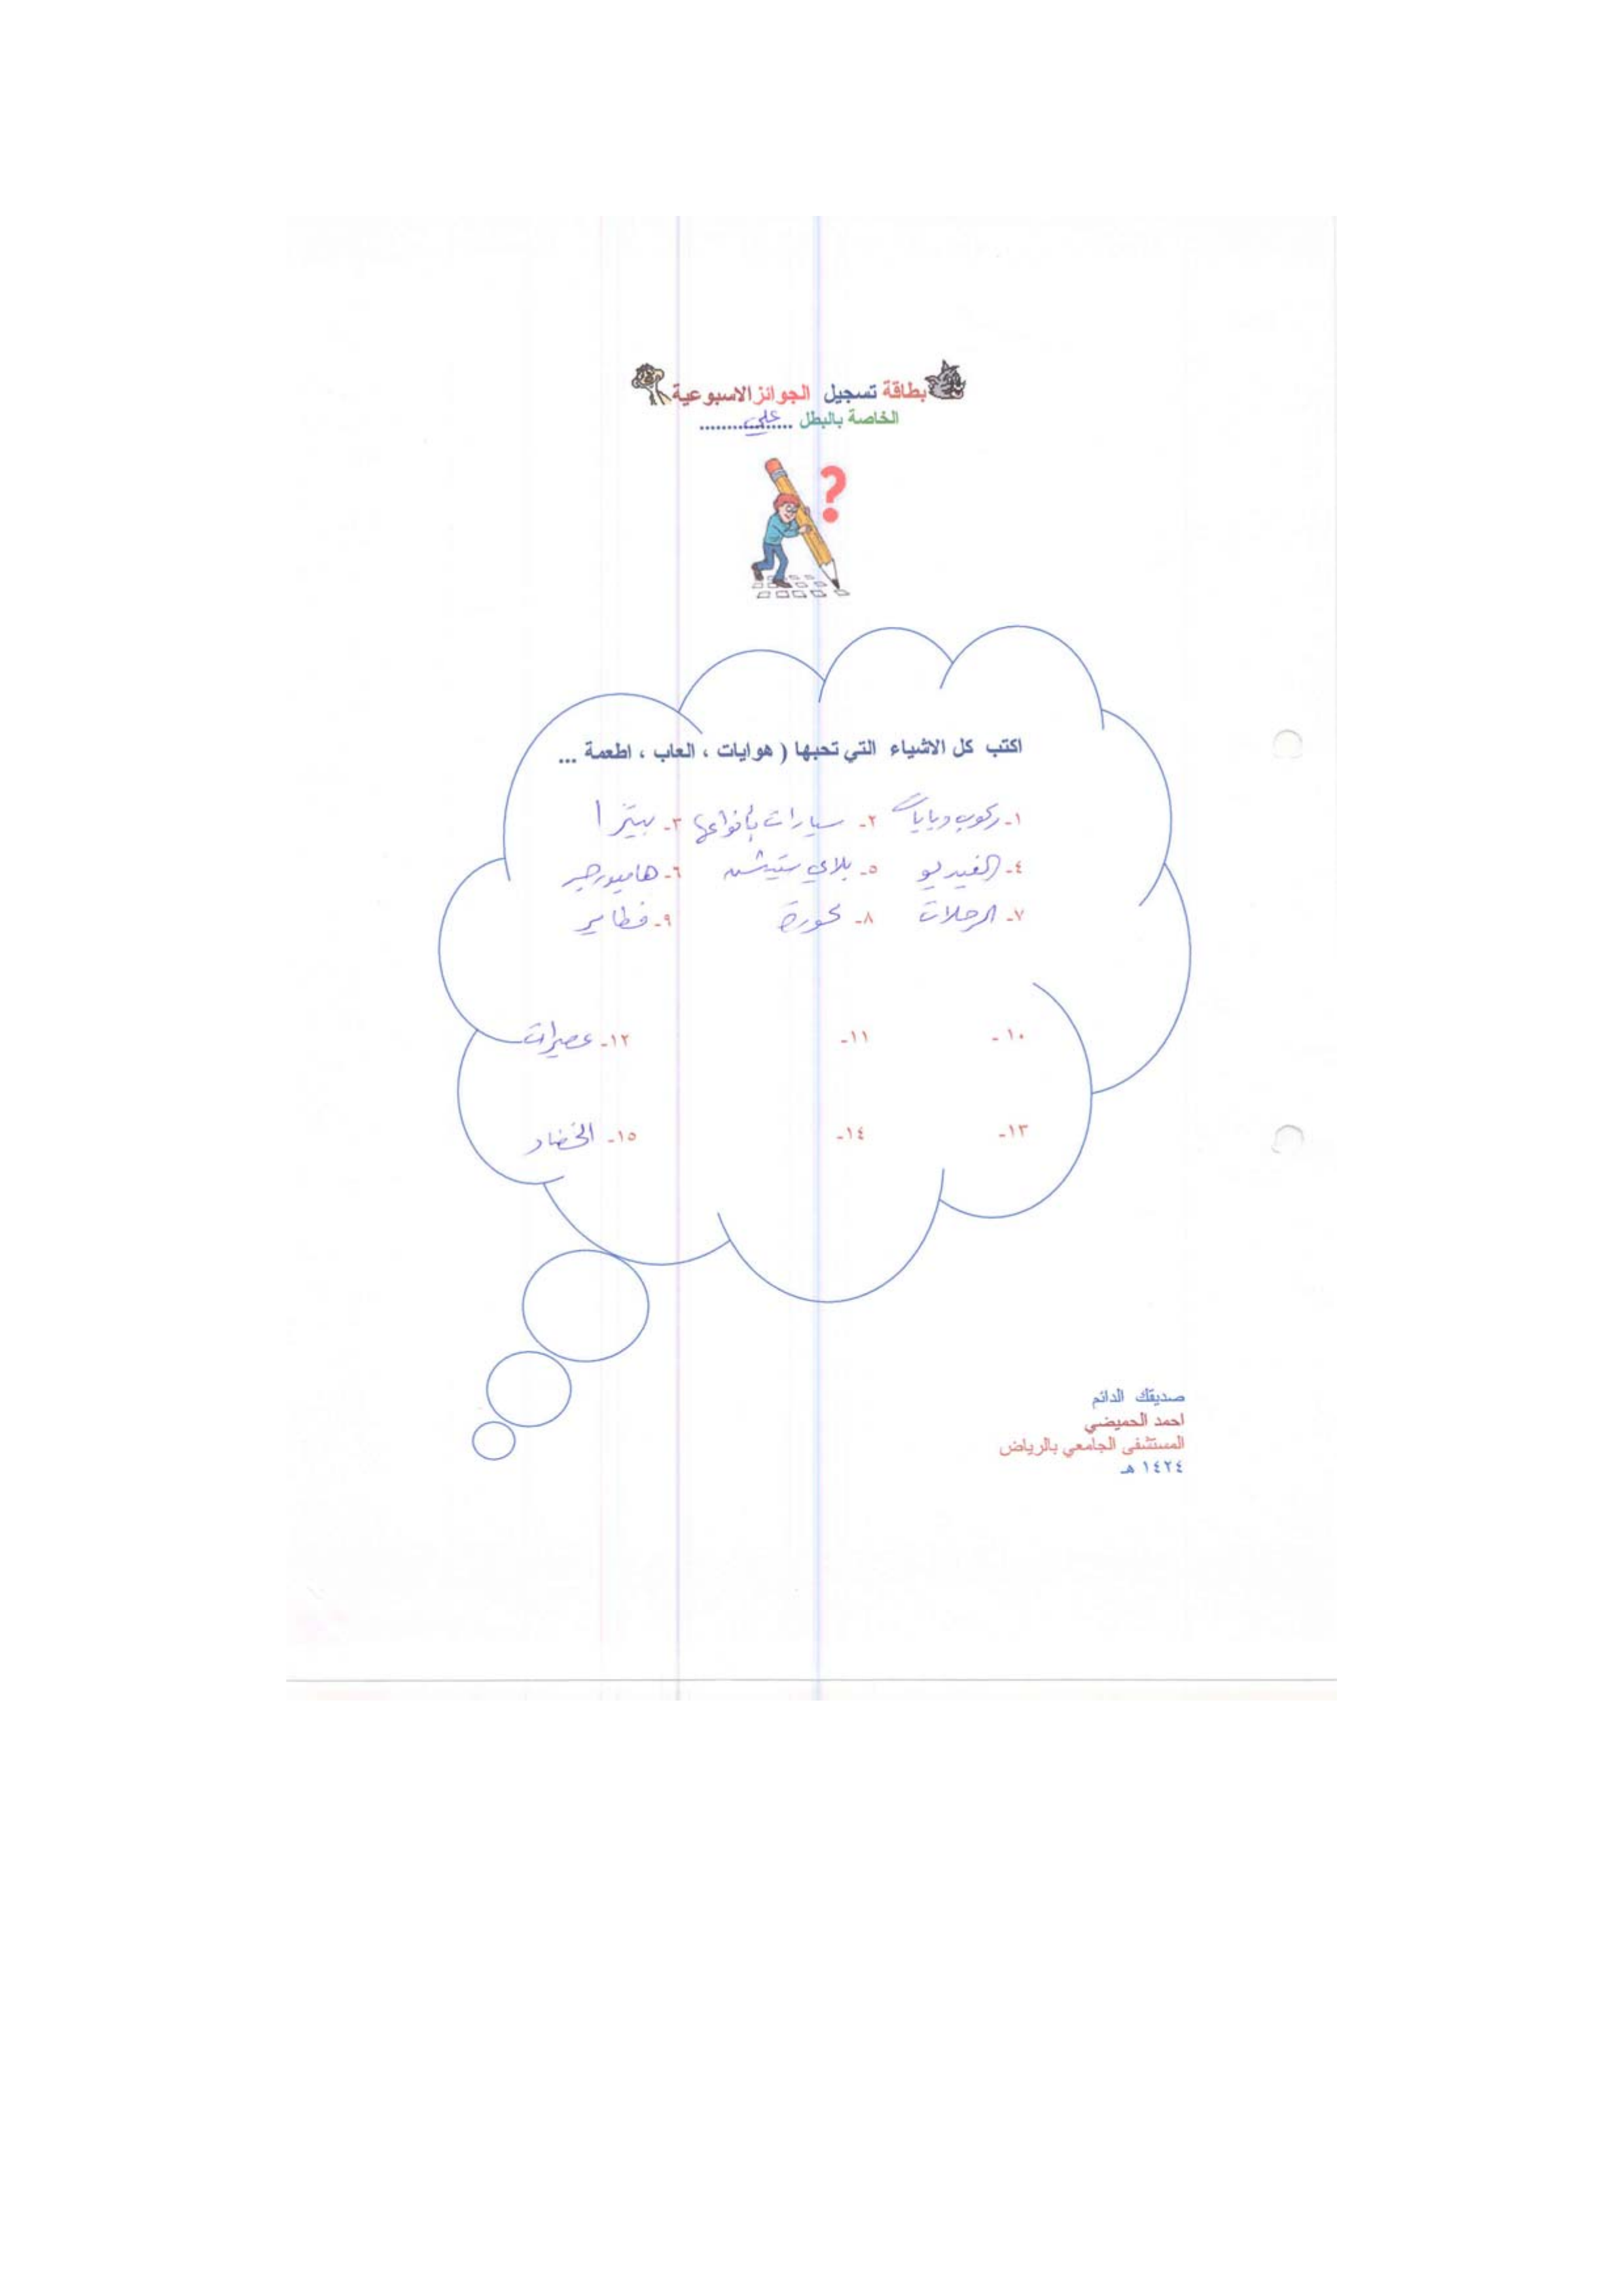 بطاقة تسجيل الجوائز الاسبوعية
الخاصة بالبطل ..... علي .....
?
اكتب كل الاشياء التي تحبها ( هوايات ، العاب ، اطعمة ...
١- ركوب دبابات ٢- سيارات بأنواعها ٣- بيتزا
٤- الفيديو ٥- بلاي ستيشن ٦- هامبورجر
٧- الرحلات ٨- كورة ٩- فطاير
١٠- ١١- ١٢- عصيرات
١٣- ١٤- ١٥- الخضار
صديقك الدائم
احمد الحميضي
المستشفى الجامعي بالرياض
١٤٢٤ هـ